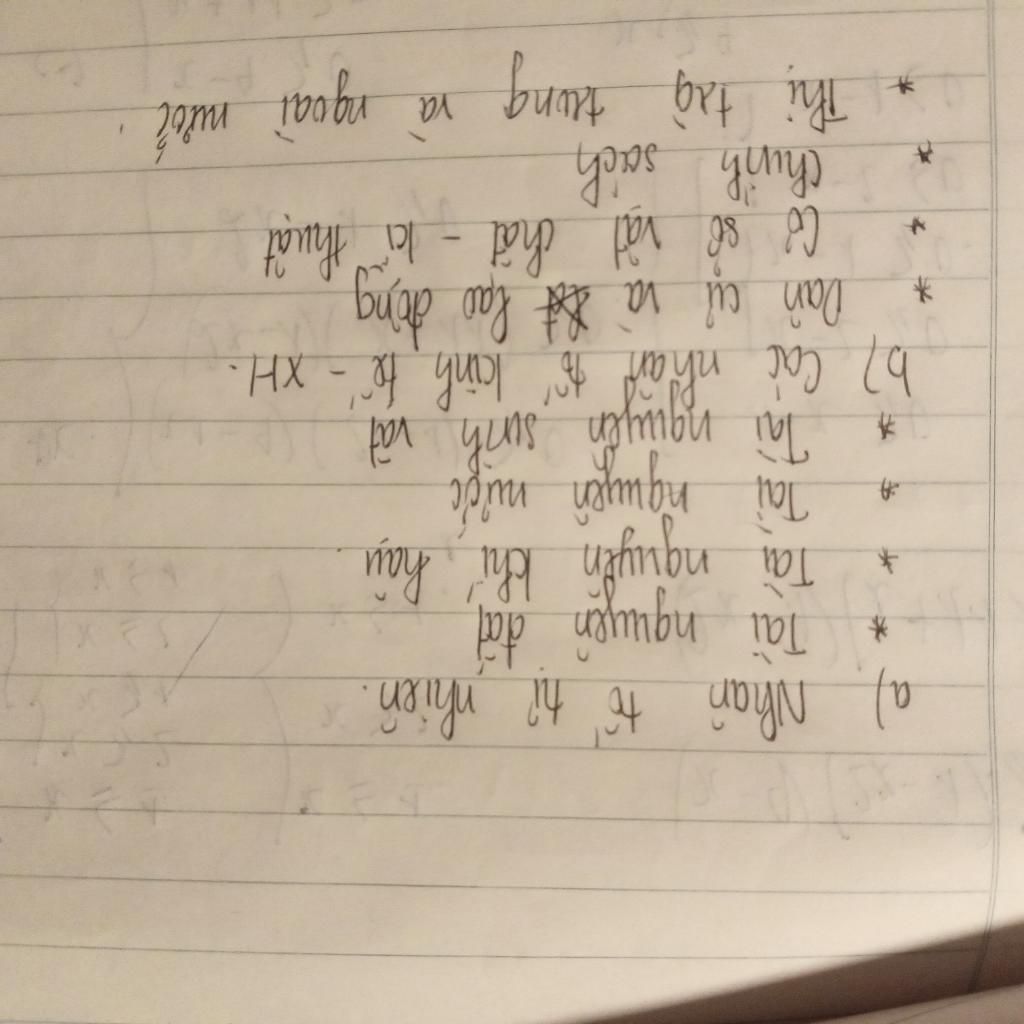 a) Nhân tố tự nhiên.
* Tài nguyên đất
* Tài nguyên khí hậu.
* Tài nguyên nước
* Tài nguyên sinh vật
b) Các nhân tố kinh tế - XH.
* Dân cư và lao động
* Cơ sở vật chất - kĩ thuật
* Chính sách
* Thị trg trong và ngoài nước.